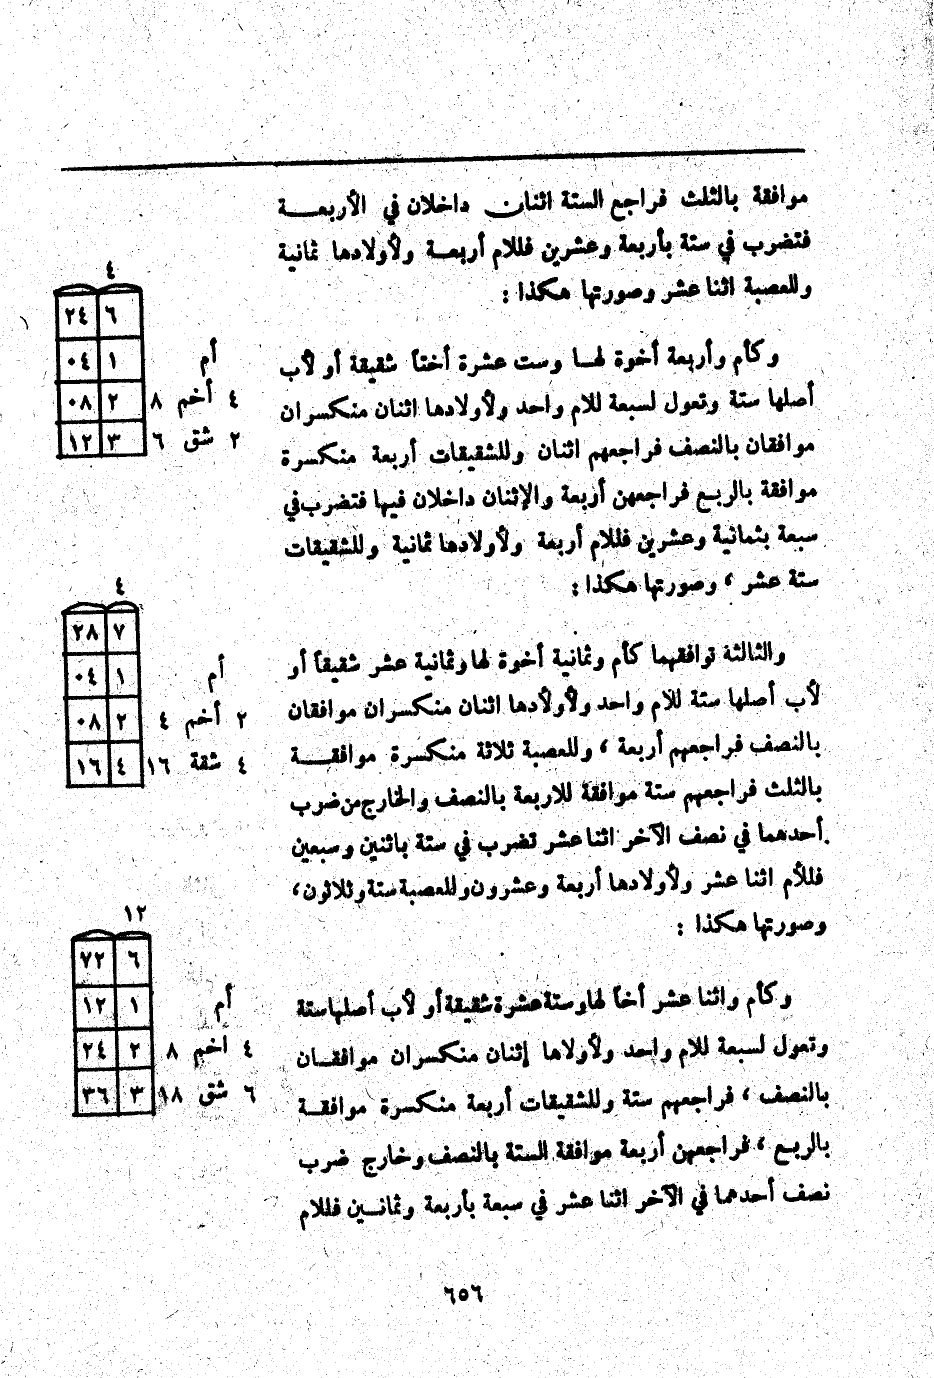 موافقة بالثلث فراجع الستة اثنان داخلان في الأربعــة
فتضرب في ستة بأربعة وعشرين فللام أربعــة ولأولادها ثمانية
وللعصبة اثنا عشر وصورتها هكذا :
٤
٦ ٢٤
أم ١ ٠٤
٤ أخم ٨ ٢ ٠٨
٢ شق ٦ ٣ ١٢
وكأم وأربعة أخوة لهــا وست عشرة أختاً شقيقة أو لأب
أصلها ستة وتعول لسبعة للام واحد ولأولادها اثنان منكسران
موافقان بالنصف فراجعهم اثنان وللشقيقات أربعة منكسرة
موافقة بالربـع فراجعهن أربعة والإثنان داخلان فيها فتضرب في
سبعة بثمانية وعشرين فللام أربعة ولأولادها ثمانية وللشقيقات
ستة عشر ، وصورتها هكذا :
٤
٧ ٢٨
أم ١ ٠٤
٢ أخم ٤ ٢ ٠٨
٤ شقة ١٦ ٤ ١٦
والثالثة توافقهما كأم وثمانية أخوة لها وثمانية عشر شقيقاً أو
لأب أصلها ستة للام واحد ولأولادها اثنان منكسران موافقان
بالنصف فراجعهم أربعة ، وللعصبة ثلاثة منكسرة موافقــــة
بالثلث فراجعهم ستة موافقة للاربعة بالنصف والخارج من ضرب
أحدهما في نصف الآخر اثنا عشر تضرب في ستة باثنين وسبعين
فللأم اثنا عشر ولأولادها أربعة وعشرون وللعصبة ستة وثلاثون ،
وصورتها هكذا :
١٢
٦ ٧٢
أم ١ ١٢
٤ أخم ٨ ٢ ٢٤
٦ شق ١٨ ٣ ٣٦
وكأم واثنا عشر أخاً لها وستة عشرة شقيقة أو لأب أصلها ستة
وتعول لسبعة للام واحد ولأولاها إثنان منكسران موافقــان
بالنصف ، فراجعهم ستة وللشقيقات أربعة منكسرة موافقــة
بالربـع ، فراجعهن أربعة موافقة الستة بالنصف وخارج ضرب
نصف أحدهما في الآخر اثنا عشر في سبعة بأربعة وثمانــين فللام
٦٥٦